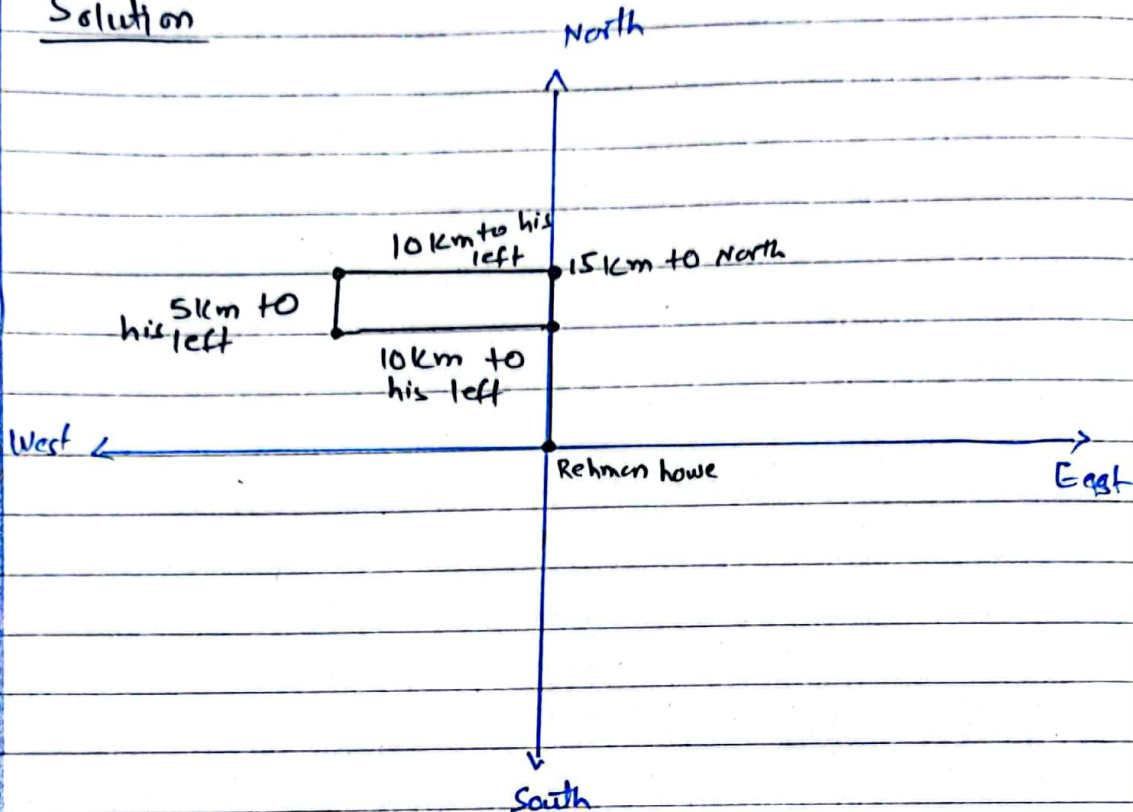 Solution
North
10 Km to his
left
15 Km to North
5 Km to
his left
10 Km to
his left
West
Rehmen howe
East
South